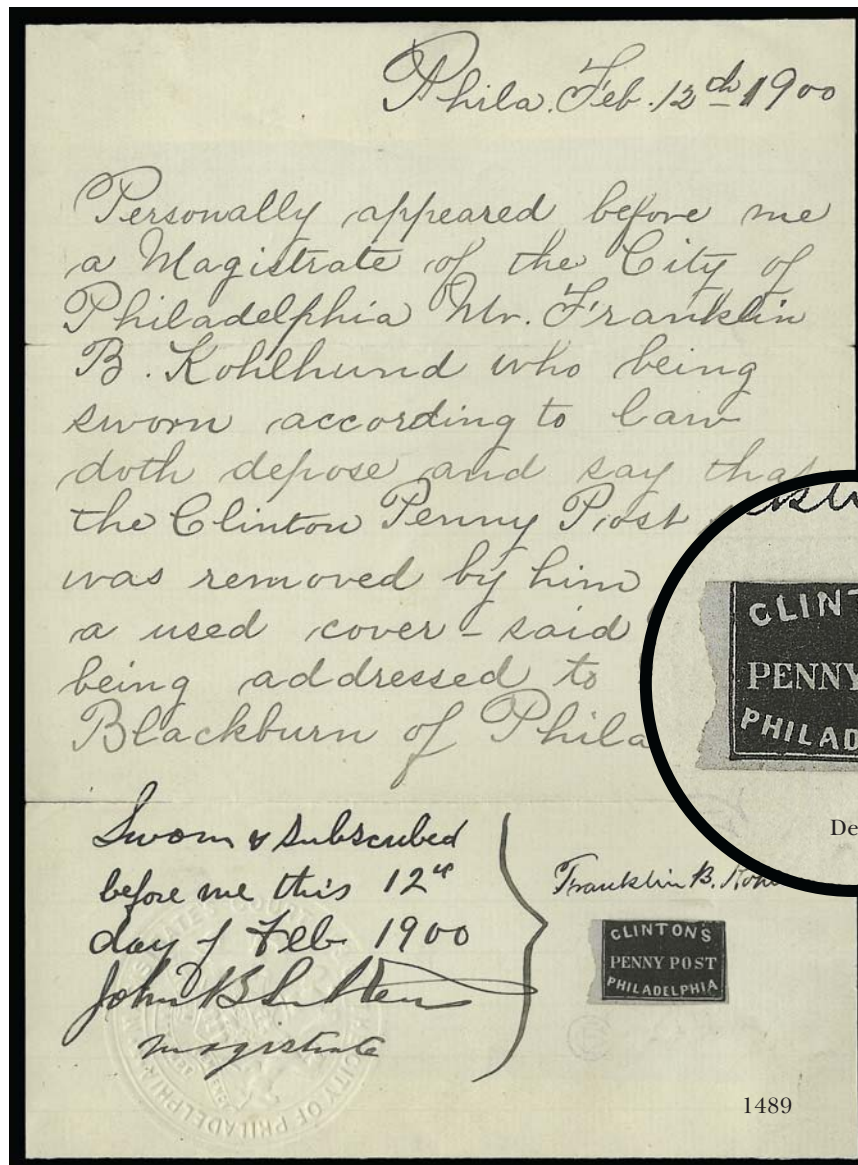 Phila. Feb. 12th 1900
Personally appeared before me
a Magistrate of the City of
Philadelphia Mr. Franklin
B. Kohlhund who being
sworn according to law
doth depose and say that
the Clinton Penny Post
was removed by him
a used cover - said
being addressed to
Blackburn of Phila
CLINT
PENNY
PHILAD
De
Sworn & subscribed
before me this 12th
day of Feb 1900
John B
magistrate
Franklin B.
CLINTON'S
PENNY POST
PHILADELPHIA
CITY OF PHILADELPHIA
1489